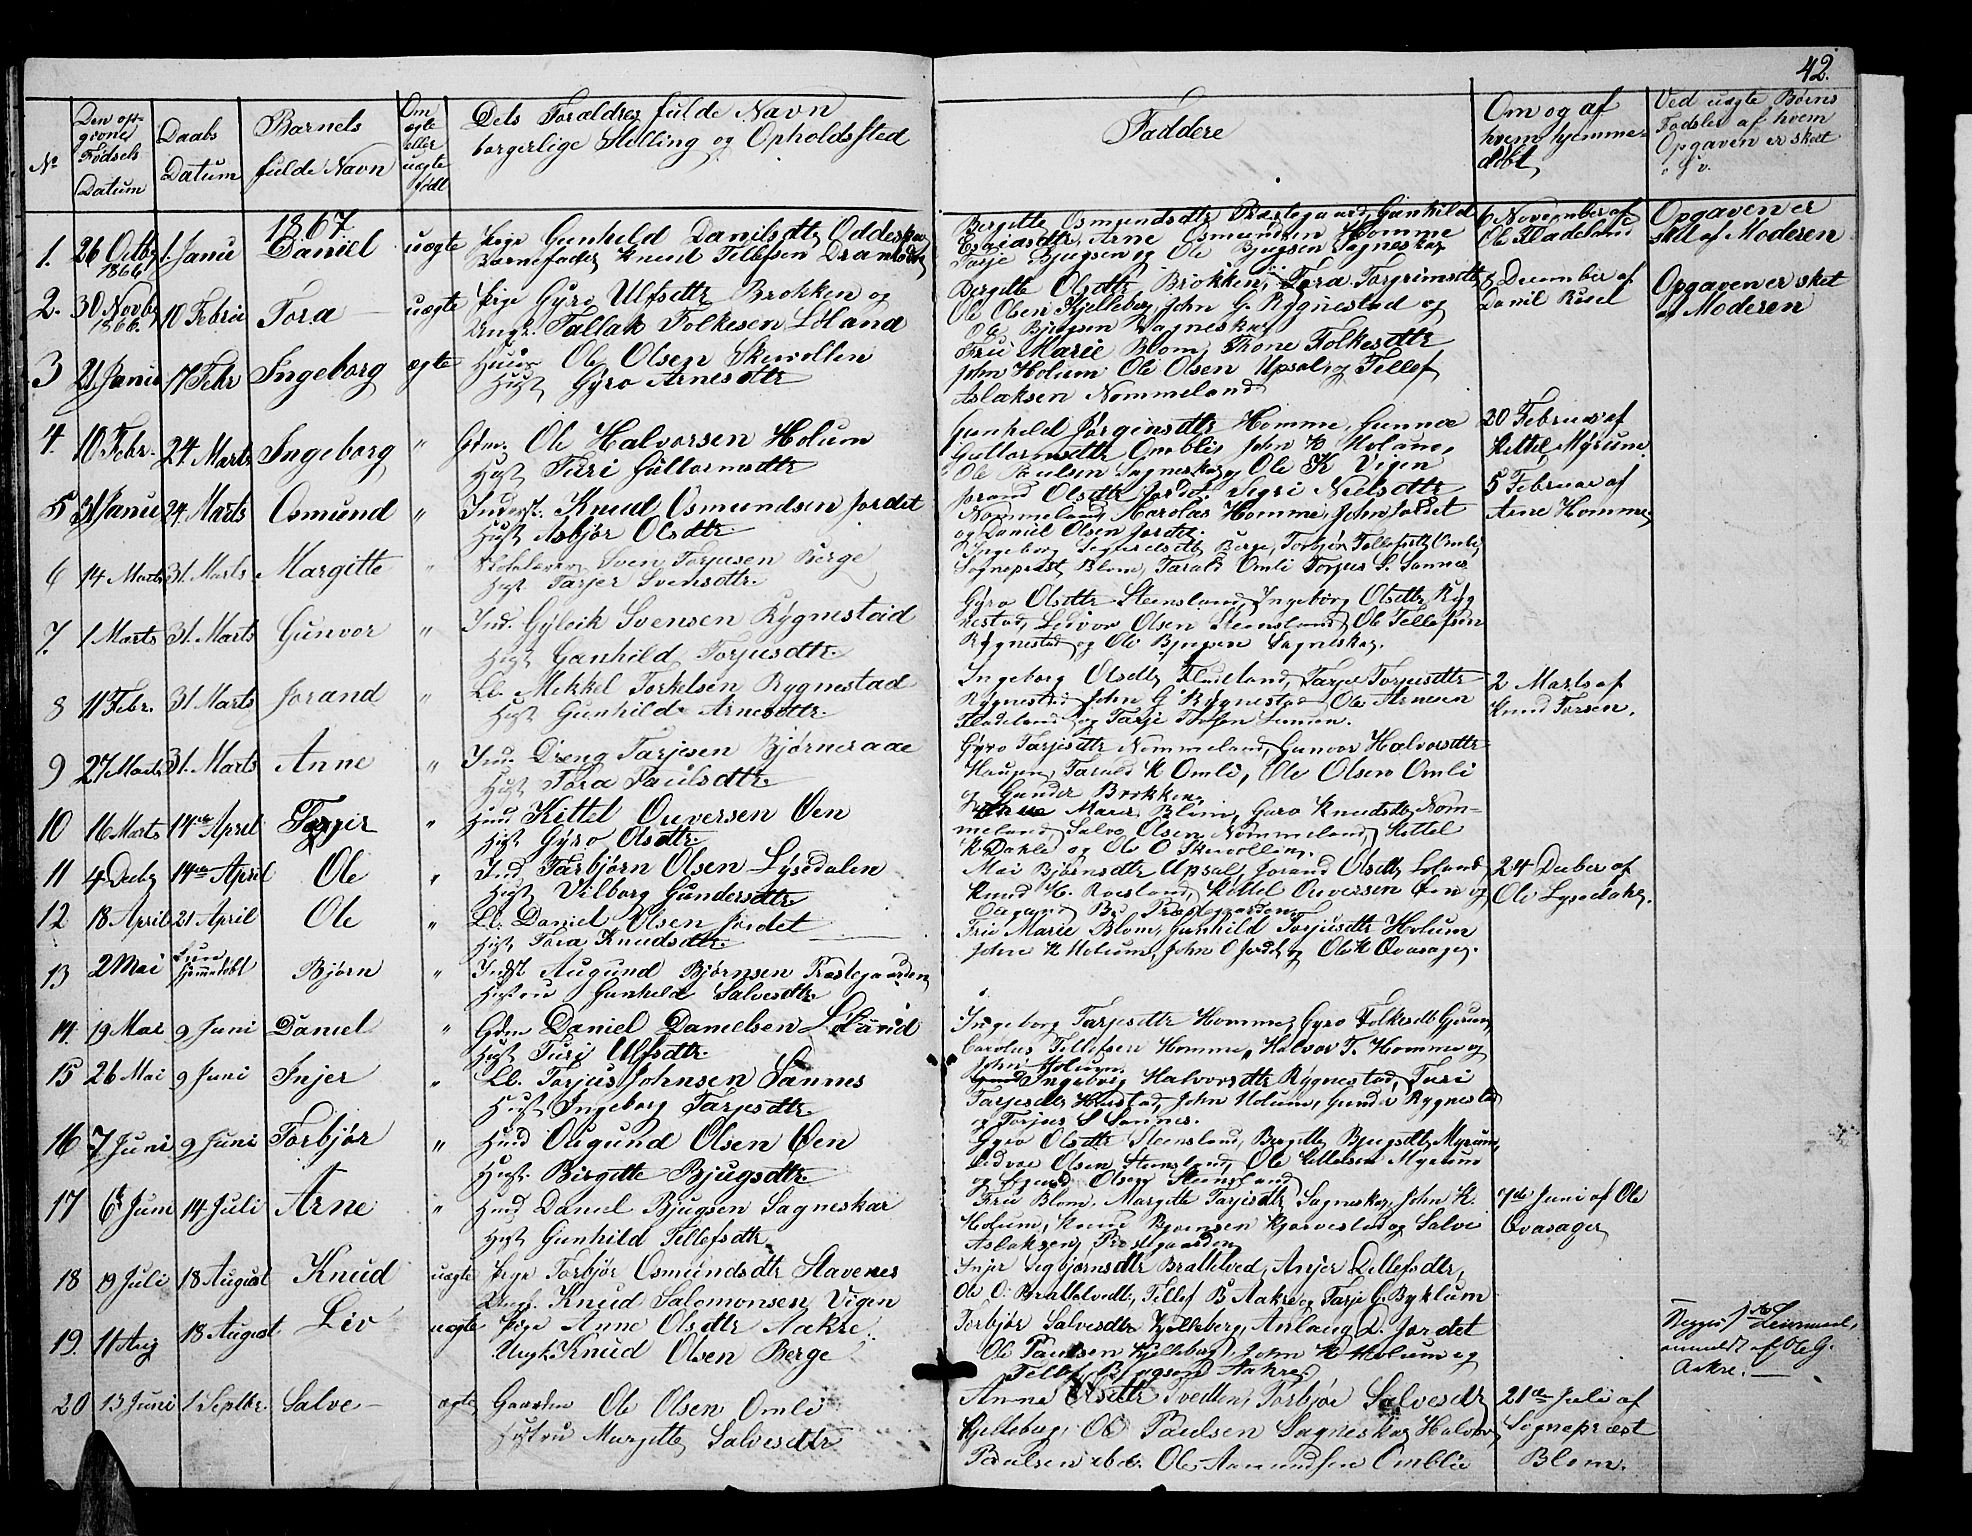 42.
No
Den opgivne Fødsels Datum
Daabs Datum
Barnets fulde Navn
Om ægte eller uægte født
Dets Forældres fulde Navn
borgerlige Stilling og Opholdssted
Faddere
Om og af
hvem hjemme-
døbt
Ved uægte Børns
Fødsler af hvem
Opgaven er skeet
1867
1. 26 Octbr 1866 1. Janu Daniel uægte Pige Gunhild Danilsdtr
Barnefader Knud Tellefsen
Bergitte Osmundsdtr Præstegaard, Gunhild
Esaiasdtr, Arne Osmundsen Homme
Tarje Bjugsen og Ole Bjugsen Sagneskar
6 November af
Ole Fladeland
Opgaven er
skt af Moderen
2. 30 Novbr 1866 10 Febru Tora uægte Pige Gyro Ulfsdtr Brokken og
Ungk. Tallak Folkesen
Bergitte Olsdtr Brokken, Tora Torgrimsdtr
Ole Olsen Kjelleberg, John G. Rygnestad og
Ole Bjugsen Sagneskar
8 December af
Daniel
Opgaven er sket
af Moderen
3 21 Janu 17 Febr Ingeborg ægte Ole Olsen
Hust Gyro Arnesdtr
Fru Marie Blom, Thone Folkesdtr
John Holum Ole Olsen Upsal og Tellef
Aslaksen Nommeland
4. 10 Febr. 24 Marts Ingeborg " Gdm. Ole Halvorsen Holum
Hust Turi Guttormsdtr
Gunhild Jørgensdtr Homme, Gunnor
Guttormsdtr Omblie, John K Holum,
Ole Paulsen Sagneskar og Ole K Vigen
20 Februar af
Kittil Myrum
5 31 Janu 24 Marts Osmund " Inderst. Knud Osmundsen Jordet
Hust Asbjør Olsdtr
Jorand Olsdtr Jordet. Sigri Nielsdtr
Nommeland Karolus Homme, John Jordet
og Daniel Olsen Jordet.
5 Februar af
Arne Homme
6 14 Marts 31. Marts Margitte " Sven Torjusen Berge
Hust Tarjer Svensdtr
Ingeborg Sigurdsdtr Berge, Torbjør Tellefsdtr Omlie,
Sognepræst Blom, Tarald Omli Torjus S. Sannes
7. 1 Marts 31. Marts Gunvor " Ind. Gyleik Svensen Rygnestad
Hust Gunhild Torjusdtr.
Gyro Olsdtr Steensland, Ingeborg Olsdtr Ryg
nestad, Leidvor Olsen Steensland, Ole Tellefsen
Rygnestad og Ole Bjugsen Sagneskar.
8 11 Febr. 31 Marts Jorand " Lb. Mikkel Torkelsen Rygnestad
Hust Gunhild Arnesdtr.
Ingeborg Olsdtr Fladeland, Tarjer Torjusdtr
Rygnestad John G Rygnestad Ole Arnesen
Fladeland og Tarje
2 Marts af
Knud Torsen.
9 27 Marts 31. Marts Anne " Ind. Dreng Tarjesen Bjørneraae
Hust Tora Paulsdtr
Gyro Tarjesdtr Nommeland, Gunvor Halvorsdtr
Haugen, Tarald K Omli, Ole Olsen Omli
og Gunder Brokken
10 16 Marts 14de April Tarjer " Huud Kittel Ouversen Øen
Hust Gyro Olsdtr
Marie Blom, Gyro Knudsdtr Nom-
meland, Salve Olsen Nommeland, Kittel
K Dahle og Ole O
11 4 Decbr 14de April Ole " Ind Torbjørn Olsen Lysedalen
Hust Vilborg Gundersdtr
Mari Bjørnsdtr Upsal, Jorand Olsdtr
Knud H. Roesland, Kittel Ouversen Øen og
24 Decber af
Ole Lysedalen
12 18 April 21 April Ole " Lb. Daniel Olsen Jordet
Hust Tora Knudsdtr
Fru Marie Blom, Gunhild Torjusdtr Holum
John K Holum, John O Jordet og Ole K Qvasager.
13 2 Mai Kun hjemmedøbt Bjørn " Indst Augund Bjørnsen Præstegaarden
Hustru Gunhild Salvesdtr
14. 19 Mai 9 Juni Daniel " Gdm Daniel Danielsen
Hust Turi Ulfsdtr.
Ingeborg Tarjesdtr Homme, Gyro Folkesdtr
Carolus Tellefsen Homme, Halvor T. Homme og
John Holum
15 26 Mai 9 Juni Injer " Lb. Torjus Johnsen Sannes
Hust Ingeborg Tarjesdtr
Ingeborg Halvorsdtr Rygnestad, Turi
Tarjesdtr Harstad, John Holum, Gunder Rygnestad
og Torjus S Sannes.
16 7 Juni 9 Juni Torbjør " Huud Ougund Olsen Øen
Hust. Birgitte Bjugsdtr
Gyro Olsdtr Steensland, Bergitte Bjugsdtr Myrum,
Leidvor Olsen Steensland, Ole Kittelsen Myrum
og Olsen Steensland
17 6 Juni 14 Juli Arne " Huud Daniel Bjugsen Sagneskar
Hust Gunhild Tellefsdtr
Fru Blom, Margitte Tarjesdtr Sagneskar, John K.
Holum, Knud Bjørnsen og Salve
Aslaksen Præstegaarden
7de Juni af Ole
Qvasager
18 19 Juli 18 August Knud uægte Pige Torbjør Osmundsdtr Stavenes
Ungk. Knud Salomonsen Vigen
Injer Sigbjørnsdtr Brattelved, Anjer Tellefsdtr,
Ole O. Brattelvedt, Tellef B Aakre og Tarje G. Byklum
19. 11 Aug 18 August Liv uægte Pige Anne Olsdtr Aakre
Ungk. Knud Olsen Berge
Torbjør Salvesdtr Kjelleberg, Anlaug D. Jordet
Ole Paulsen Kjelleberg, John K Holum og
Tellef Bjugsen Aakre
Begges 1ste Leiermaal,
anmeldt af Ole G.
Aakre.
20 13 Juni 1 Septbr. Salve ægte Gaardm Ole Olsen Omli
Hustru Margitte Salvesdtr
Anne Olsdtr Tvedten, Torbjør Salvesdtr
Kjelleberg, Ole Paulsen Sagneskar Halvor
Paulsen Ole Aamundsen Omblie
21de Juli af
Sognepræst
Blom.